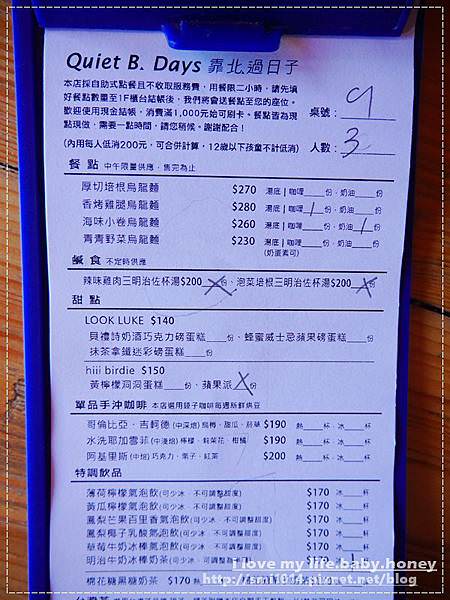 Quiet B. Days 靠北過日子
本店採自助式點餐且不收取服務費，用餐限二小時，請先填
好餐點數量至1F櫃台結帳後，我們將會送餐點至您的座位。
歡迎使用現金結帳，消費滿1,000元始可刷卡。餐點皆為現
點現做，需要一點時間，請您稍候。謝謝配合！
桌號： 9
(內用每人低消200元，可合併計算，12歲以下孩童不計低消)
人數： 3
餐 點 中午限量供應，售完為止
厚切培根烏龍麵 $270 湯底 | 咖哩____份，奶油____份
香烤雞腿烏龍麵 $280 湯底 | 咖哩_/_份，奶油____份
海味小卷烏龍麵 $260 湯底 | 咖哩____份，奶油_/_份
青青野菜烏龍麵 $230 湯底 | 咖哩____份，奶油____份
(奶蛋素可)
鹹 食 不定時供應
辣味雞肉三明治佐杯湯$200 X 份、泡菜培根三明治佐杯湯$200 X 份
甜 點
LOOK LUKE $140
貝禮詩奶酒巧克力磅蛋糕____份、蜂蜜威士忌蘋果磅蛋糕____份
抹茶拿鐵迷彩磅蛋糕____份
hiii birdie $150
黃檸檬洞洞蛋糕____份、蘋果派 X 份
單品手沖咖啡 本店選用鏡子咖啡每週新鮮烘豆
哥倫比亞．吉軻德 (中深焙) 烏梅、甜瓜、菸草 $190 熱____杯，冰____杯
水洗耶加雪菲 (中淺焙) 檸檬、荷茉花、柑橘 $190 熱____杯，冰____杯
阿基里斯 (中焙) 巧克力、栗子、紅茶 $200 熱____杯，冰____杯
特調飲品
薄荷檸檬氣泡飲(可少冰．不可調整甜度) $170 冰____杯
黃瓜檸檬氣泡飲(可少冰．不可調整甜度) $170 冰____杯
鳳梨芒果百里香氣泡飲(可少冰．不可調整甜度) $170 冰____杯
鳳梨椰子乳酸氣泡飲(可少冰．不可調整甜度) $170 冰____杯
草莓牛奶冰棒氣泡飲(可少冰．不可調整甜度) $170 冰____杯
明治牛奶冰棒奶茶(可少冰．可調 $170 冰_1_杯
棉花糖黑糖奶茶 $170 熱
I love my life.baby.honey
http://smi1014.pixnet.net/blog